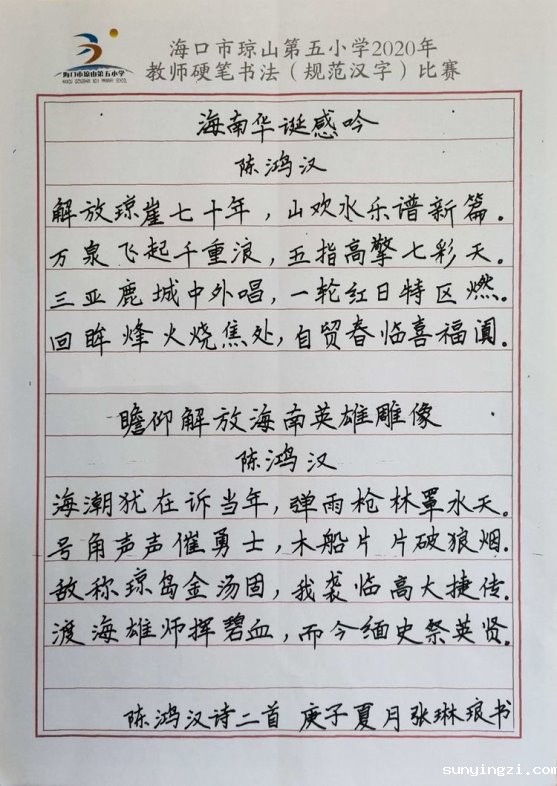 海口市琼山第五小学
海口市琼山第五小学2020年
教师硬笔书法（规范汉字）比赛
海南华诞感吟
陈鸿汉
解放琼崖七十年，山欢水乐谱新篇.
万泉飞起千重浪，五指高擎七彩天.
三亚鹿城中外唱，一轮红日特区燃.
回眸烽火烧焦处，自贸春临喜福阗.
瞻仰解放海南英雄雕像
陈鸿汉
海潮犹在诉当年，弹雨枪林罩水天.
号角声声催勇士，木船片片破狼烟.
敌称琼岛金汤固，我袭临高大捷传.
渡海雄师挥碧血，而今缅史祭英贤.
陈鸿汉诗二首 庚子夏月张琳琅书
sunyingzi.com